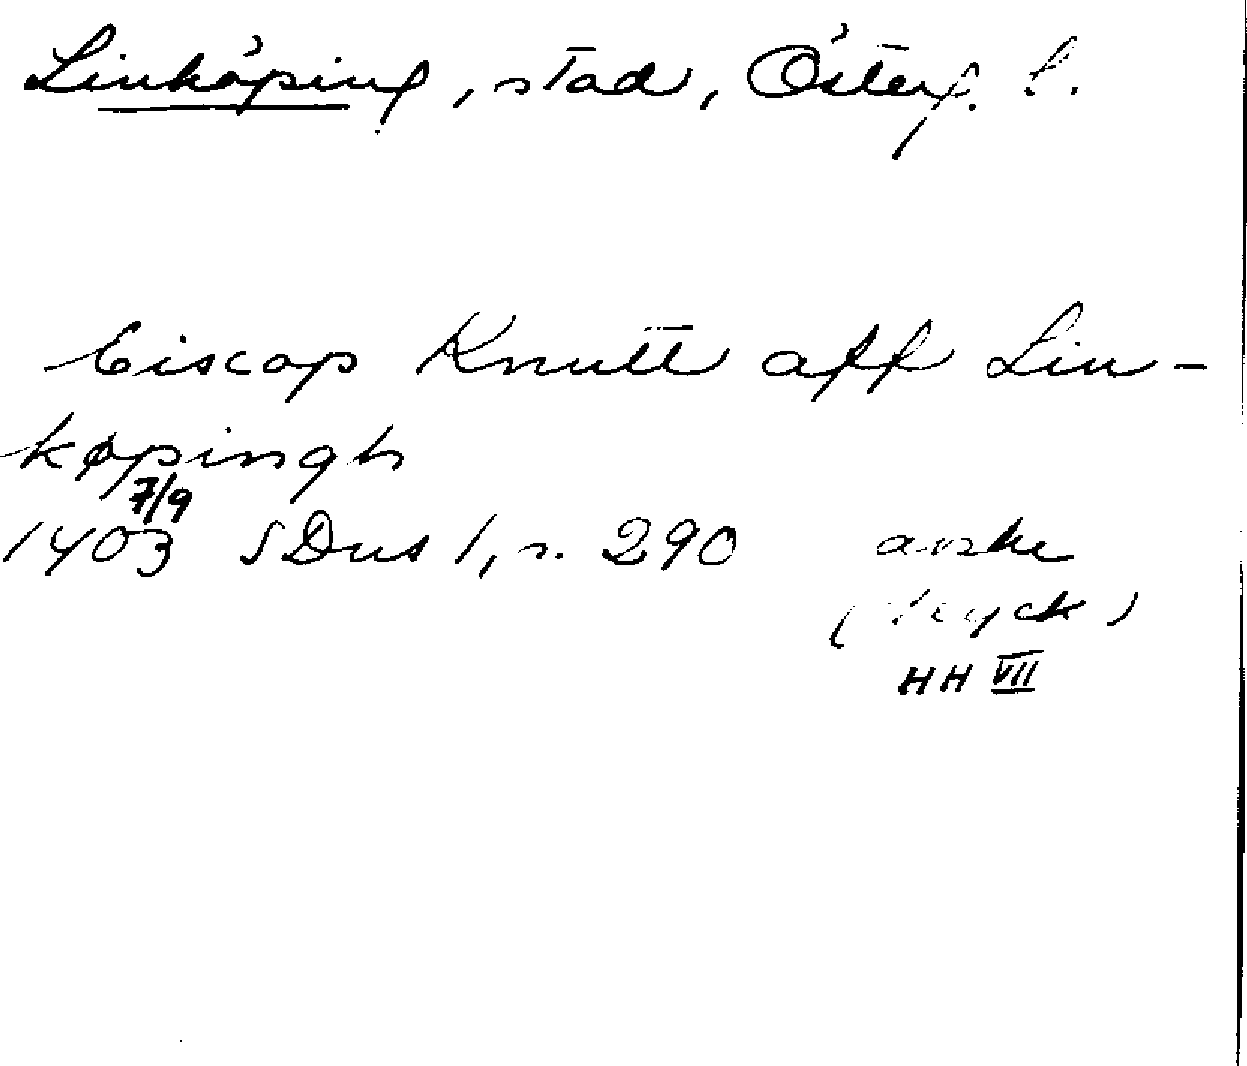 Linköping, stad, Österg. l.
biscop Knutt aff Lin-
køpingh
7/9
1403 SDns 1, s. 290 avskr
(tryck)
HH VII